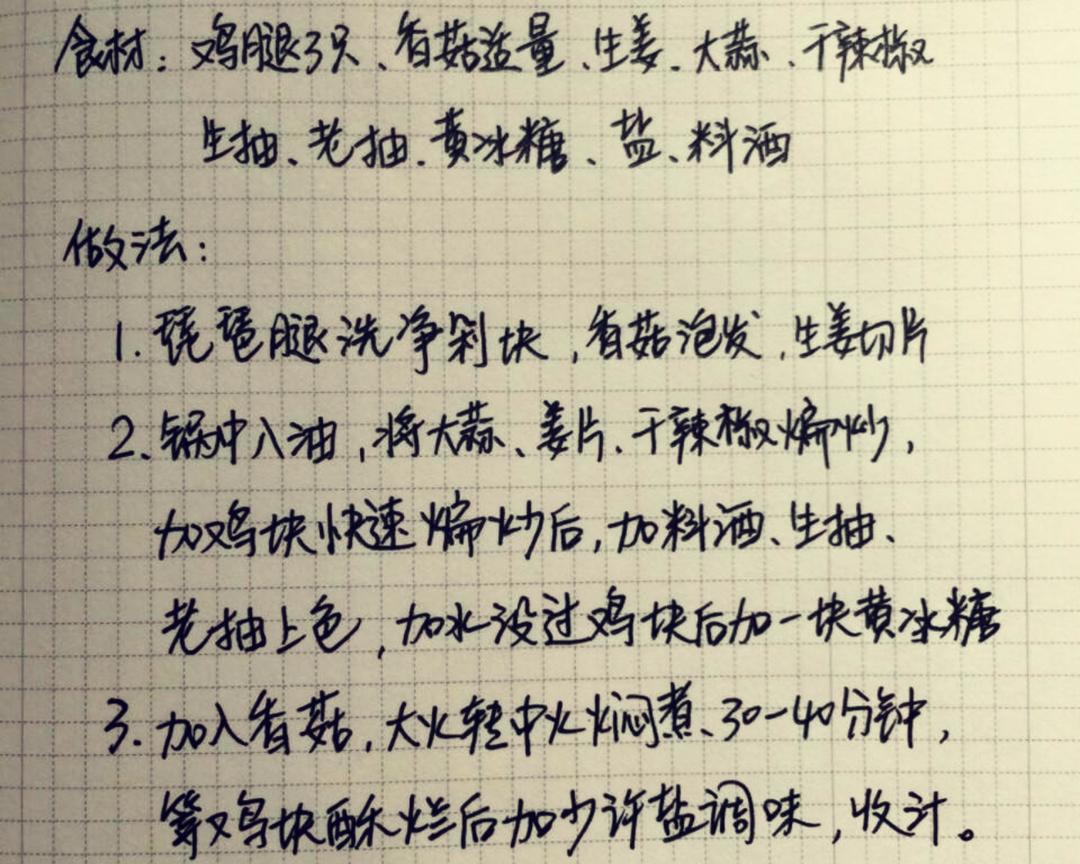 食材：鸡腿3只、香菇适量、生姜、大蒜、干辣椒
生抽、老抽、黄冰糖、盐、料酒
做法：
1. 琵琶腿洗净剁块，香菇泡发，生姜切片
2. 锅中入油，将大蒜、姜片、干辣椒煸炒，
加鸡块快速煸炒后，加料酒、生抽、
老抽上色，加水没过鸡块后加一块黄冰糖
3. 加入香菇，大火转中火焖煮、30-40分钟，
等鸡块酥烂后加少许盐调味，收汁。